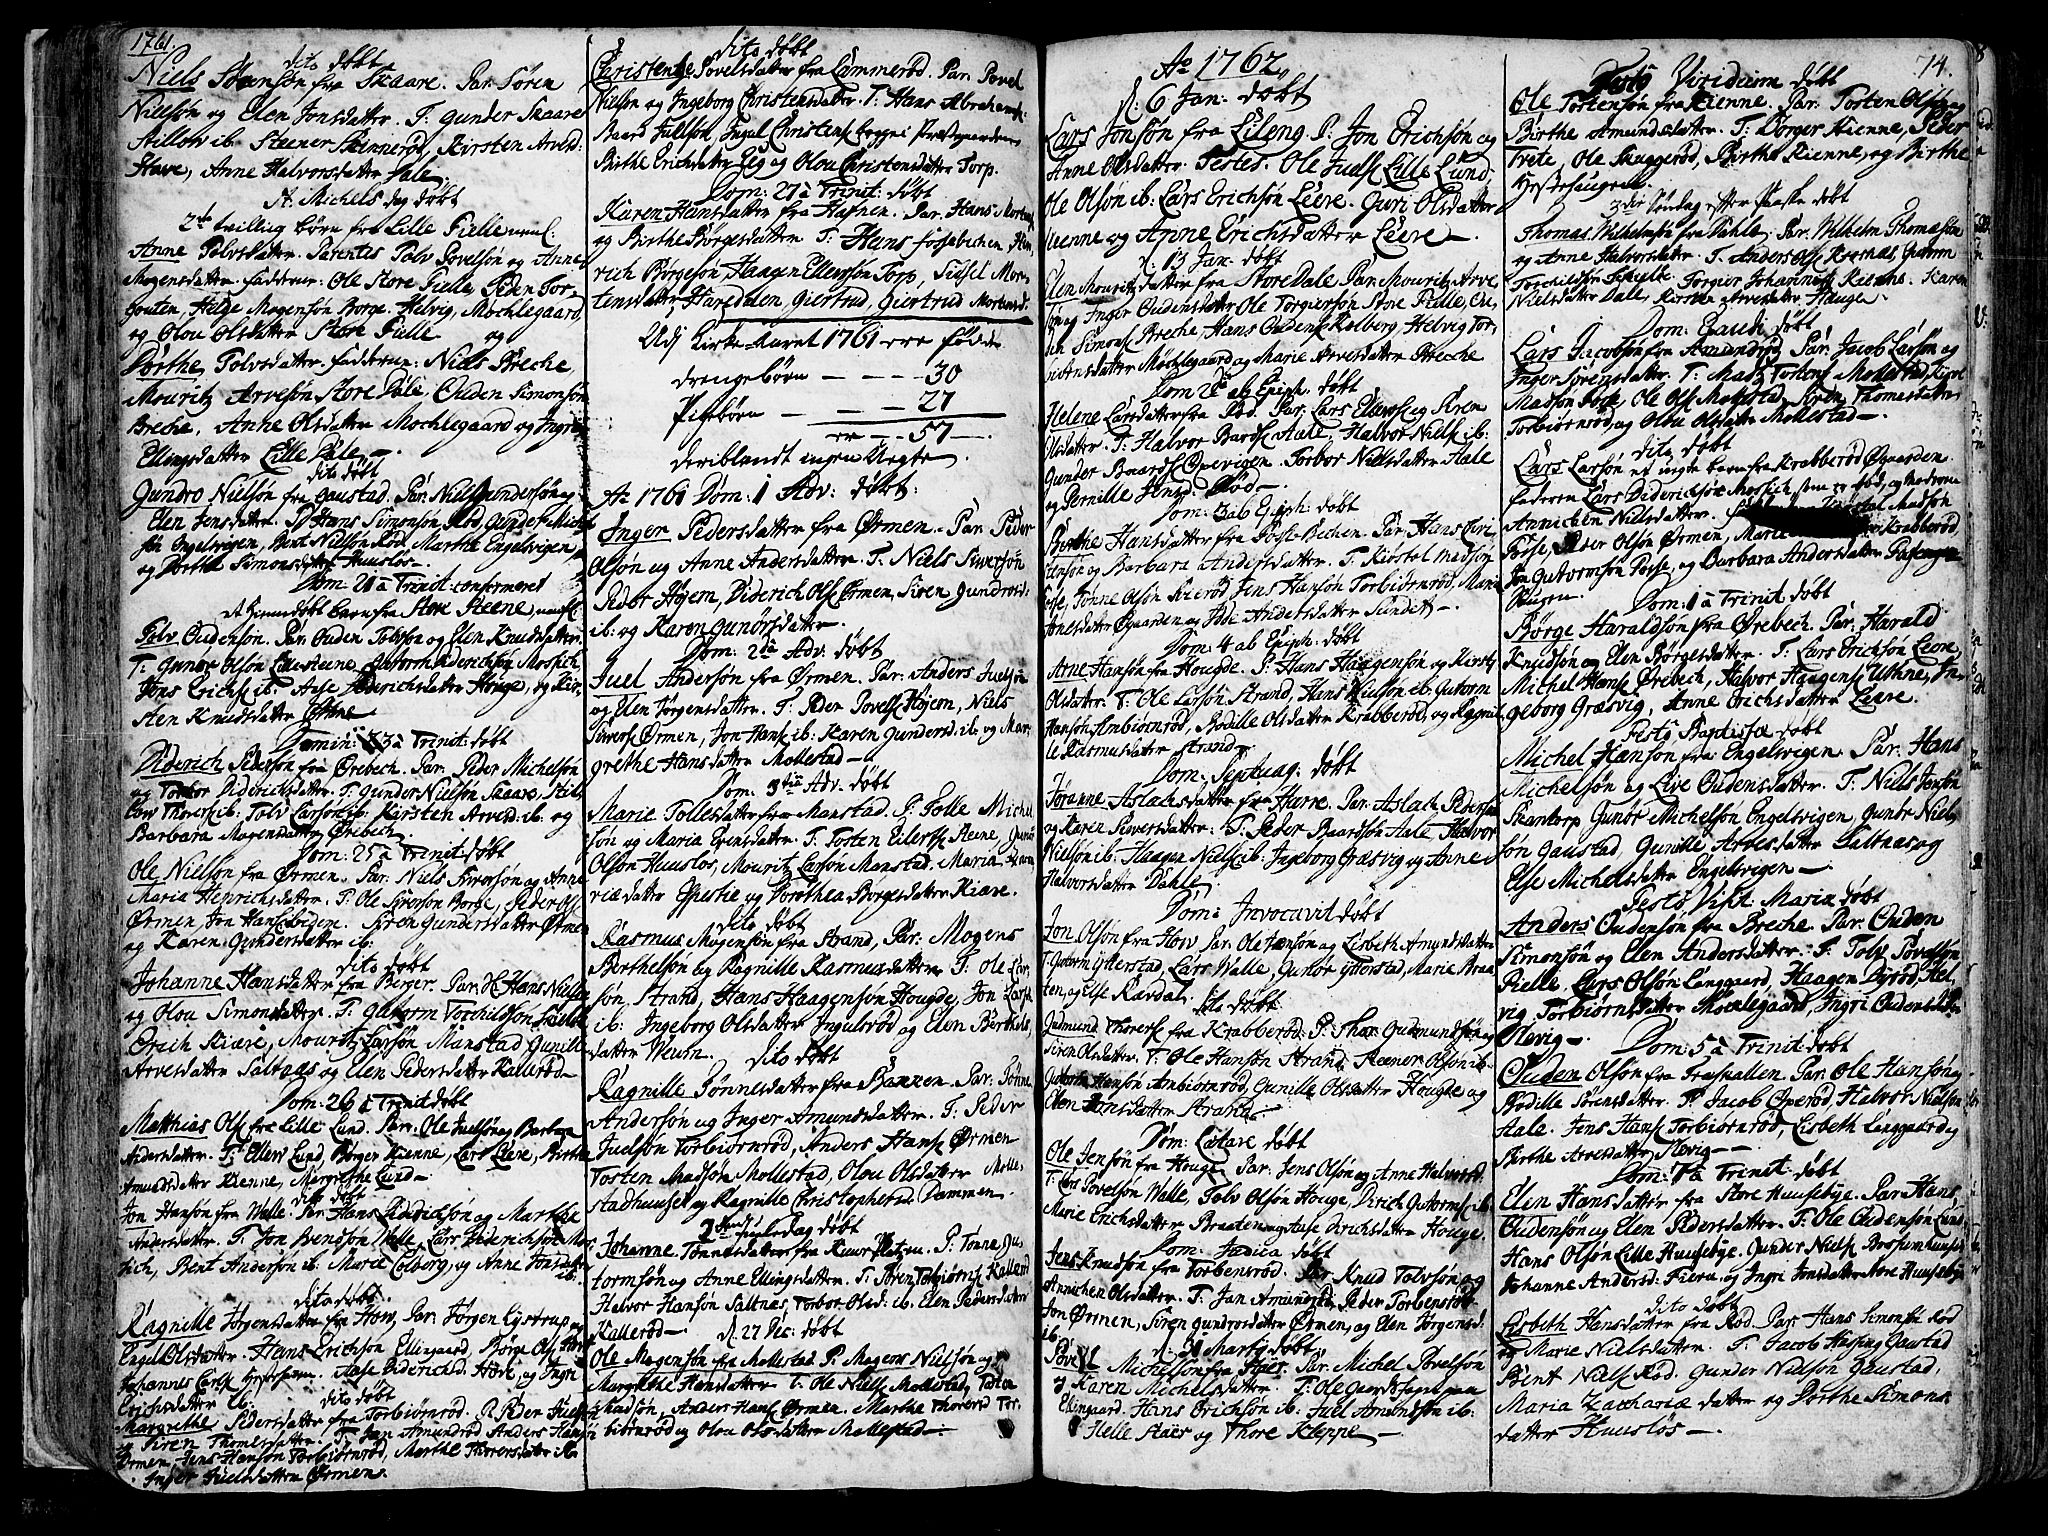 1761.
dito døbt
Niels Sørensøn fra Skaare. Par: Søren
Nielsøn og Elen Jonsdatter. T: Gunder Skaare
Stillov ib. Steener Kinnerød, Kirsten Arvesd:
Have, Anne Halvorsdatter Hale.
St. Michels dag døbt
2de tvilling børn fra Lille Fielle neml:
Anne Tolvsdatter. Parentes Tolv Povelsøn og Anne
Mogensdatter. Fadderne: Ole Store Fielle, Peder Tor-
gouten, Helge Mogensøn Borge. Helvig Mochlegaard,
og Olou Olsdatter Store Fielle og
Dorthe Tolvsdatter. Fadderne: Niels Breche,
Mouritz Arvesøn Store Dale, Ouden Simonsøn
Breche, Anne Olsdatter Mochlegaard og Ingri
Ellingsdatter Lille Dale.
dito døbt
Gundro Nielsøn fra Gaustad. Par: Niels Gundersøn og
Elen Jensdatter. T: Hans Simonsøn Rød, Gunder Michel
søn Engelsvigen, Bent Nielsøn Rød, Marthe Engelsvigen,
og Dorthe Simonsdatter Huusløs.
Dom: 20 à Trinit: confirmeret
et hiemmedøbt barn fra Store Steene, neml:
Tolv Oudenson. Par: Ouden Tolvson og Elen Knudsdatter.
T: Gunder Olsøn Lille Steene, Gutorm Diderichsøn Mosfich
Jens Erichs: ib. Aase Diderichsdatter Houge, og Kir-
sten Knudsdatter
Domin: 23 à Trinit: døbt
Diderich Pedersøn fra Ørebech. Par: Peder Michelsøn
og Torbor Diderichsdatter. T: Gunder Nielsøn Skaare, Stil-
lov Thores: ib: Tolv Larsøn ib: Kirsten Arvesd: ib: og
Barbara Mogensdatter Ørebech.
Dom: 25 à Trinit døbt
Ole Nielsøn fra Ørmen. Par: Niels Siversøn og Anne
Maria Henrichsdatter. T: Ole Siversøn Borge, Peder Ols:
Ørmen, Jon Hans: ibidem. Siren Gundersdatter Ørmen
og Karen Gundersdatter ib:
dito døbt
Johanne Hansdatter fra Berger. Par: H: Hans Nielsen
og Olou Simonsdatter. T: Gutorm Torchildsøn Skielbe
Erich Kiære, Mouritz Larsøn Manstad, Gunille
Arvesdatter Saltnæs og Elen Pedersdatter Kallerød.
Dom: 26 à Trinit døbt
Matthias Ols: fra Lille Lund. Par: Ole Juelsøn og Barbara
Andersdatter. T: Ellew Lund, Børger Kienne, Lars Leere, Birthe
Amundsdatter Kienne, Margrethe Lund.
dito døbt
Jon Hansøn fra Walle. Par: Hans Diderichsøn og Marthe
Andersdatter. T: Jon Svendsøn Walle, Lars Diderichsøn Mos-
fich, Bent Andersøn ib. Marie Colberg, og Anne Jonsdatter
ib.
dito døbt
Ragnille Jørgensdatter fra How, Par: Jørgen Eystrup og
Engel Olsdatter. Hans Erichsøn Ellingaard, Børge Ols:
Johannes Carls: Aase Diderichsd: How, og Ingri
Erichsdatter ib.
dito døbt
Margrethe Pedersdatter fra Torbiørnrød. P: Peder Juelsøn
og Siren Thomesdatter. T: Jan Amundrød Anders Hansøn
Ørmen, Jens Hansøn Torbiørnrød, Marthe Thoresdatter
Inger Juelsdatter Ørmen.
dito døbt
Christentze Povelsdatter fra Lammerød. Par: Povel
Nielsøn og Ingeborg Christensdatter. T: Hans Abrahams:
Baard Juelsøn, Ingul Christens: begge i Præstegaarden,
Birthe Erichsdatter Eeg og Olou Christensdatter Torp.
Dom: 27 à Trinit: døbt
Karen Hansdatter fra Hafnen. Par: Hans Mortens:
og Birthe Børgesdatter. T: Hans Fossebechen, Hen-
rich Børgesøn, Haagen Ellevsøn Torp, Sidsel Mor-
tensdatter Karedalen, Giertrud, Giertrud Mortensd:
Udj Kirke-Aaret 1761 ere fødde
drengebørn — — — 30
Pigebørn — — — 27
er — — 57
deriblandt ingen Uægte
Ao 1761 Dom: 1 Adv: døbt:
Inger Pedersdatter fra Ørmen. Par: Peder
Olsøn og Anne Andersdatter. T: Niels Siversøn
Peder Høyem, Diderich Ols: Ørmen, Siren Gundersd:
ib: og Karen Gunørsdatter.
Dom: 2da Adv: døbt
Juel Andersøn fra Ørmen. Par: Anders Juelsøn
og Elen Jørgensdatter. T: Peder Povels: Høyem, Niels
Sivers: Ørmen, Jon Hans: ib: Karen Gundersd: ib: og Mar-
grethe Hansdatter Mollestad.
Dom: 3tia Adv: døbt
Marie Tollesdatter fra Manstad. P: Tolle Michel
søn og Maria Evensdatter. T: Tosten Eilerts: Heene, Gunør
Olsøn Huusløs, Mouritz Larsøn Manstad, Maria Zacha-
riædatter og Dorothea Børgesdatter Kiære.
dito døbt
Rasmus Mogensøn fra Strand, Par: Mogens
Berthelsøn og Ragnille Rasmusdatter. T: Ole Lar-
søn, Strand, Hans Haagensøn Hougde, Jon Lars:
ib: Ingeborg Olsdatter Ingulsrød og Elen Berthels-
datter Weum.
dito døbt
Ragnille Tønnesdatter fra Dammen. Par: Tønne
Andersøn og Inger Amundsdatter. T: Peder
Juelsøn Torbiørnrød, Anders Hans: Ørmen
Tosten Madsøn Mollestad, Olou Olsdatter Molle-
stadhuuset og Ragnille Christophersd: Dammen.
2den Juledag døbt
Johanne Tønnesdatter fra Kuurplatzen. P: Tønne Gu-
tormsøn og Anne Ellingsdatter. T: Søren Torbiørns: Kallerød
Halvor Hansøn Saltnæs, Torbor Olsd: ib. Elen Pedersdatter
Kallerød.
d. 27 Dec: døbt
Ole Mogensøn fra Mollestad P: Mogens Nielsøn og
Margrethe Hansdatter. T. Ole Niels: Mollestad, Tosten
Madsøn, Anders Hans: Ørmen. Marthe Thoresd: Tor-
biørnrød og Olou Olsdatter Mollestad.
Ao 1762
d. 6 Jan: døbt
Lars Jonsøn fra Eileng. P: Jon Erichsøn og
Anne Olsdatter. Testes. Ole Juels: Lille Lund,
Ole Olsøn ib. Lars Erichsøn Leere. Guri Olsdatter
Kienne og Anne Erichsdatter Leere.
d. 13 Jan: døbt
Elen Mouritzdatter fra Store Dale Par: Mouritz Arve
søn og Inger Oudensdatter Ole Torgiersøn Store Fielle, Ou-
den Simons: Breche, Hans Oudens: Kolberg, Helvig Tor-
Mochlegaard og Marie Arvesdatter Breche
Dom 2da ab Epiph: døbt
Helene Larsdatter fra Rød. Par: Lars Ellevs: og Siren
Olsdatter. T: Halvor Bards: Aale, Halvor Niels: ib:
Gunder Baards: Opevigen. Torbor Nielsdatter Aale
og Pernille Rød.
Dom: 3 ab Epiph: døbt
Birthe Hansdatter fra Fosse-Bechen. Par: Hans Chri-
stensøn og Barbara Andersdatter. T: Kirstel Madsøn
Posse, Tønne Olsøn Kierød, Jens Hansøn Torbiørnrød, Marie
Jonsdatter Øgaarden og Andersdatter Sundet.
Dom: 4 ab Epiph: døbt
Arne Hansøn fra Hougde. P: Hans Haagensøn og Kirsti
Olsdatter. T: Ole Larsøn Strand, Hans Nielsøn ib. Gutorm
Hansøn Ambiørnrød, Bodille Olsdatter Krabberød, og Ragnil-
le Rasmusdatter Strand.
Dom: Septuag: døbt
Joranne Aslachsdatter fra Harre. Par: Aslach Pedersøn
og Karen Siversdatter. T: Peder Baardsøn Aale, Halvor
Nielsøn ib: Haagen Niels: ib: Ingeborg Græsvig og Anne
Halvorsdatter Dahle.
Dom: Invocavit døbt
Jon Olsøn fra How, Par: Ole Jensøn og Lisbeth Amundsdatter
T: Gutorm Ytterstad, Lars Walle, Gunør Ytterstad, Marie Braa-
ten, og Else Rævdal.
dito døbt
Gudmund Thores: fra Krabberød. P: Thor Gudmundsøn og
Siren Olsdatter. T: Ole Hansøn Strand, Steener Olsøn ib.
Gutorm Hansøn Ambiørnrød, Gunille Olsdatter Hougde og
Elen Hansdatter Strand.
Dom: Lætare døbt
Ole Jensøn fra Houge. Par: Jens Olsøn og Anne Halvorsd:
T: Lars Povelsøn Walle, Tolv Olsøn Houge, Dirich Gutorms: ib.
Marie Erichsdatter Braaten og Aase Dirichsdatter Houge.
Dom: Judica døbt
Jens Knudsøn fra Torbensrød. Par Knud Tolvsøn og
Annichen Olsdatter. T: Jan Amundrød, Peder Torbensrød
Jon Ørmen, Siren Gundrosdatter Ørmen, og Elen Jørgensd:
ib.
d. 31 Martij døbt
Povel Michelsøn fra Huser. Par: Michel Povelsøn
og Karen Michelsdatter. T: Ole
Ellingaard. Hans Erichsøn ib: Juel Amundsøn ib:
Helle Huser og Thore Kleppe.
74.
Festo Viridium døbt
Ole Tostensøn fra Kienne. Par: Tosten Olsøn og
Birthe Amundsdatter. T: Børger Kienne, Peder
Trete, Ole Skuggerød, Birthe Kienne, og Birthe
Hestehaugen.
3die Søndag efter Paaske døbt
Thomas Wilhelmsøn fra Dahle. Par: Wilhelm Thomasøn
og Anne Halvorsdatter. T: Anders Ols: Krernæs, Gutorm
Torchildsøn Skielbe. Torgier Johannes: Karen
Nielsdatter Dale, Kirstie Arvesdatter Hauge.
Dom: Exaudi døbt
Lars Jacobsøn fra Amundrød Par: Jacob Larsøn og
Inger Sørensdatter. T: Madz Tostens: Mollestad, Kirstel
Madsøn Posse, Ole Ols: Mollestad, Siren Thomesdatter
Torbiørnrød, og Olou Olsdatter Mollestad.
dito døbt
Lars Larsøn et uægte barn fra Krabberød Øgaarden
faderen Lars Diderichsøn Mosfich, som er død, og moderen
Annichen Nielsdatter. Kirstel Madsøn
Posse, Peder Olsøn Ørmen, Marie Krabberød,
Jon Gutormsøn Posse, og Barbara Andersdatter
Dom: 1 à Trinit døbt
Børge Haraldsøn fra Ørebech. Par: Harald
Knudsøn og Elen Børgesdatter. T: Lars Erichsøn Leere,
Michel Hans: Ørebech, Halvor Haagens: Uthne, In-
geborg Græsvig, Anne Erichsdatter Leere.
Festo Baptistæ døbt
Michel Hansøn fra Engelsvigen. Par: Hans
Michelsøn og Live Oudensdatter. T: Niels Jensøn
Skantorp Gunør Michelsøn Engelsvigen, Gunør Niel-
søn Gaustad, Gunille Arvesdatter Saltnæs og
Else Michelsdatter Engelsvigen.
Festo Visit. Mariæ døbt
Anders Oudensøn fra Breche. Par: Ouden
Simonsøn og Elen Andersdatter. T: Tolv Povelsøn
Fielle, Lars Olsøn Lenggaard, Haagen Byrød, Hel-
vig Torbiørnsdatter Mochlegaard, Ingri Oudensdatter
Slevig.
Dom: 5 à Trinit: døbt
Ouden Olsøn fra Træskallen. Par: Ole Hansøn og
Bodille Sørensdatter. T: Jacob Operød, Halvor Nielsøn
Aale. Jens Hans: Torbiørnrød, Lisbeth Lenggaard og
Birthe Arvesdatter Slevig.
Dom: 7 à Trinit: døbt
Elen Hansdatter fra Store Huusebye. Par: Hans
Oudensøn og Elen Pedersdatter. T: Ole Oudensøn Lund,
Hans Olsøn Lille Huusebye. Gunder Niels:
Johanne Anderød. Fieru, og Ingri Jonsdatter Store Huusebye
dito døbt
Lisbeth Hansdatter fra Rød. Par: Hans Simens: Rød
og Marie Nielsdatter. T: Jacob Gaustad
Bent Niels: Rød. Gunder Nielsøn Gaustad,
Maria Zachariædatter og Dorthe Simons-
datter Huusløs.